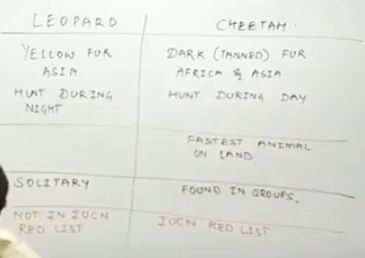 LEOPARD
CHEETAH.
YELLOW FUR
DARK (TANNED) FUR
ASIA
AFRICA & ASIA
HUNT DURING
NIGHT
HUNT DURING DAY
FASTEST ANIMAL
ON LAND
SOLITARY
FOUND IN GROUPS.
NOT IN IUCN
RED LIST
IUCN RED LIST